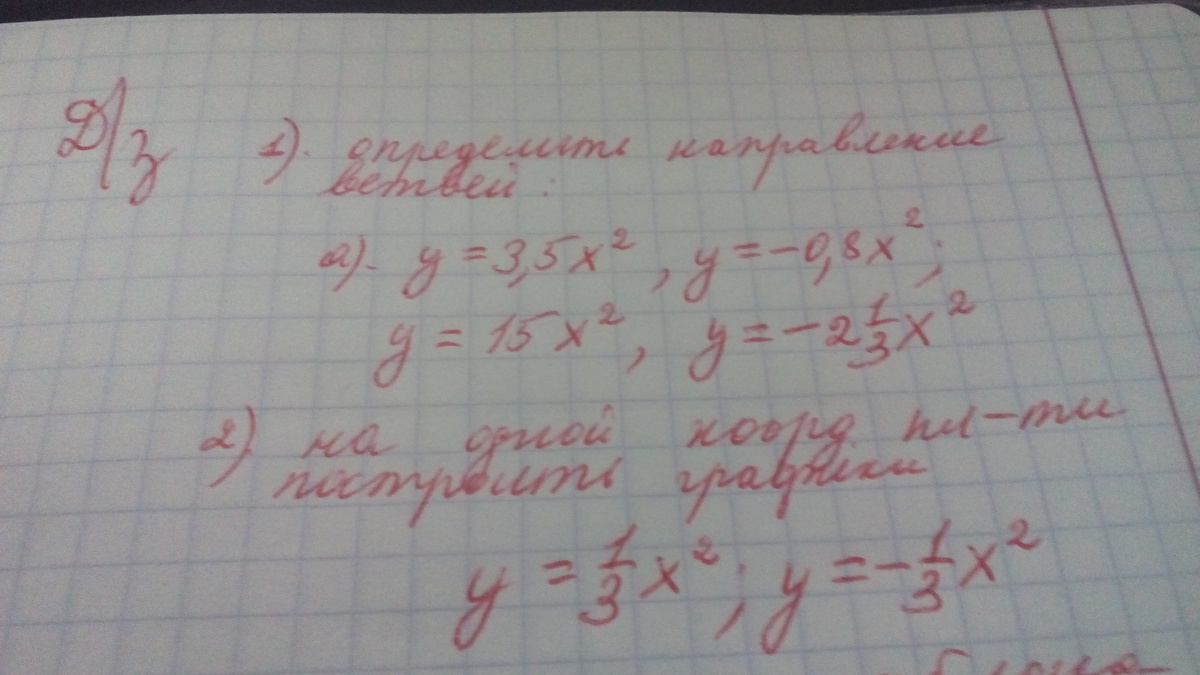 Д/з 1). определить направление
ветвей:
а). y = 3,5x², y = -0,8x²;
y = 15x², y = -2 1/3 x²
2) на одной коорд пл-ти
построить графики
y = 1/3 x²; y = -1/3 x²